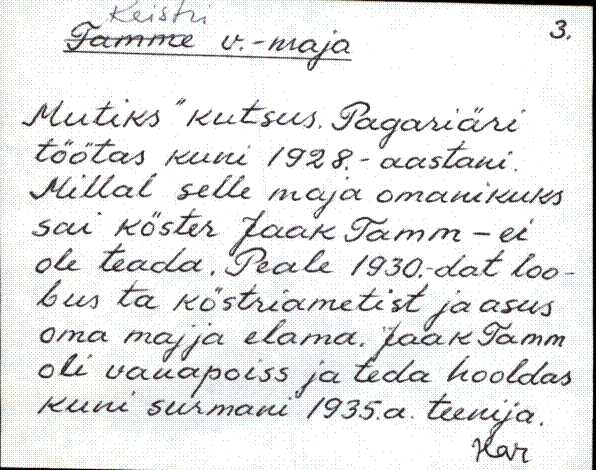 Keistri
3.
Tamme v.-maja
Mutiks" kutsus. Pagariäri
töötas kuni 1928.- aastani.
Millal selle maja omanikuks
sai köster Jaak Tamm – ei
ole teada. Peale 1930.-dat loo-
bus ta köstriametist ja asus
oma majja elama. Jaak Tamm
oli vanapoiss ja teda hooldas
kuni surmani 1935.a. teenija.
Har